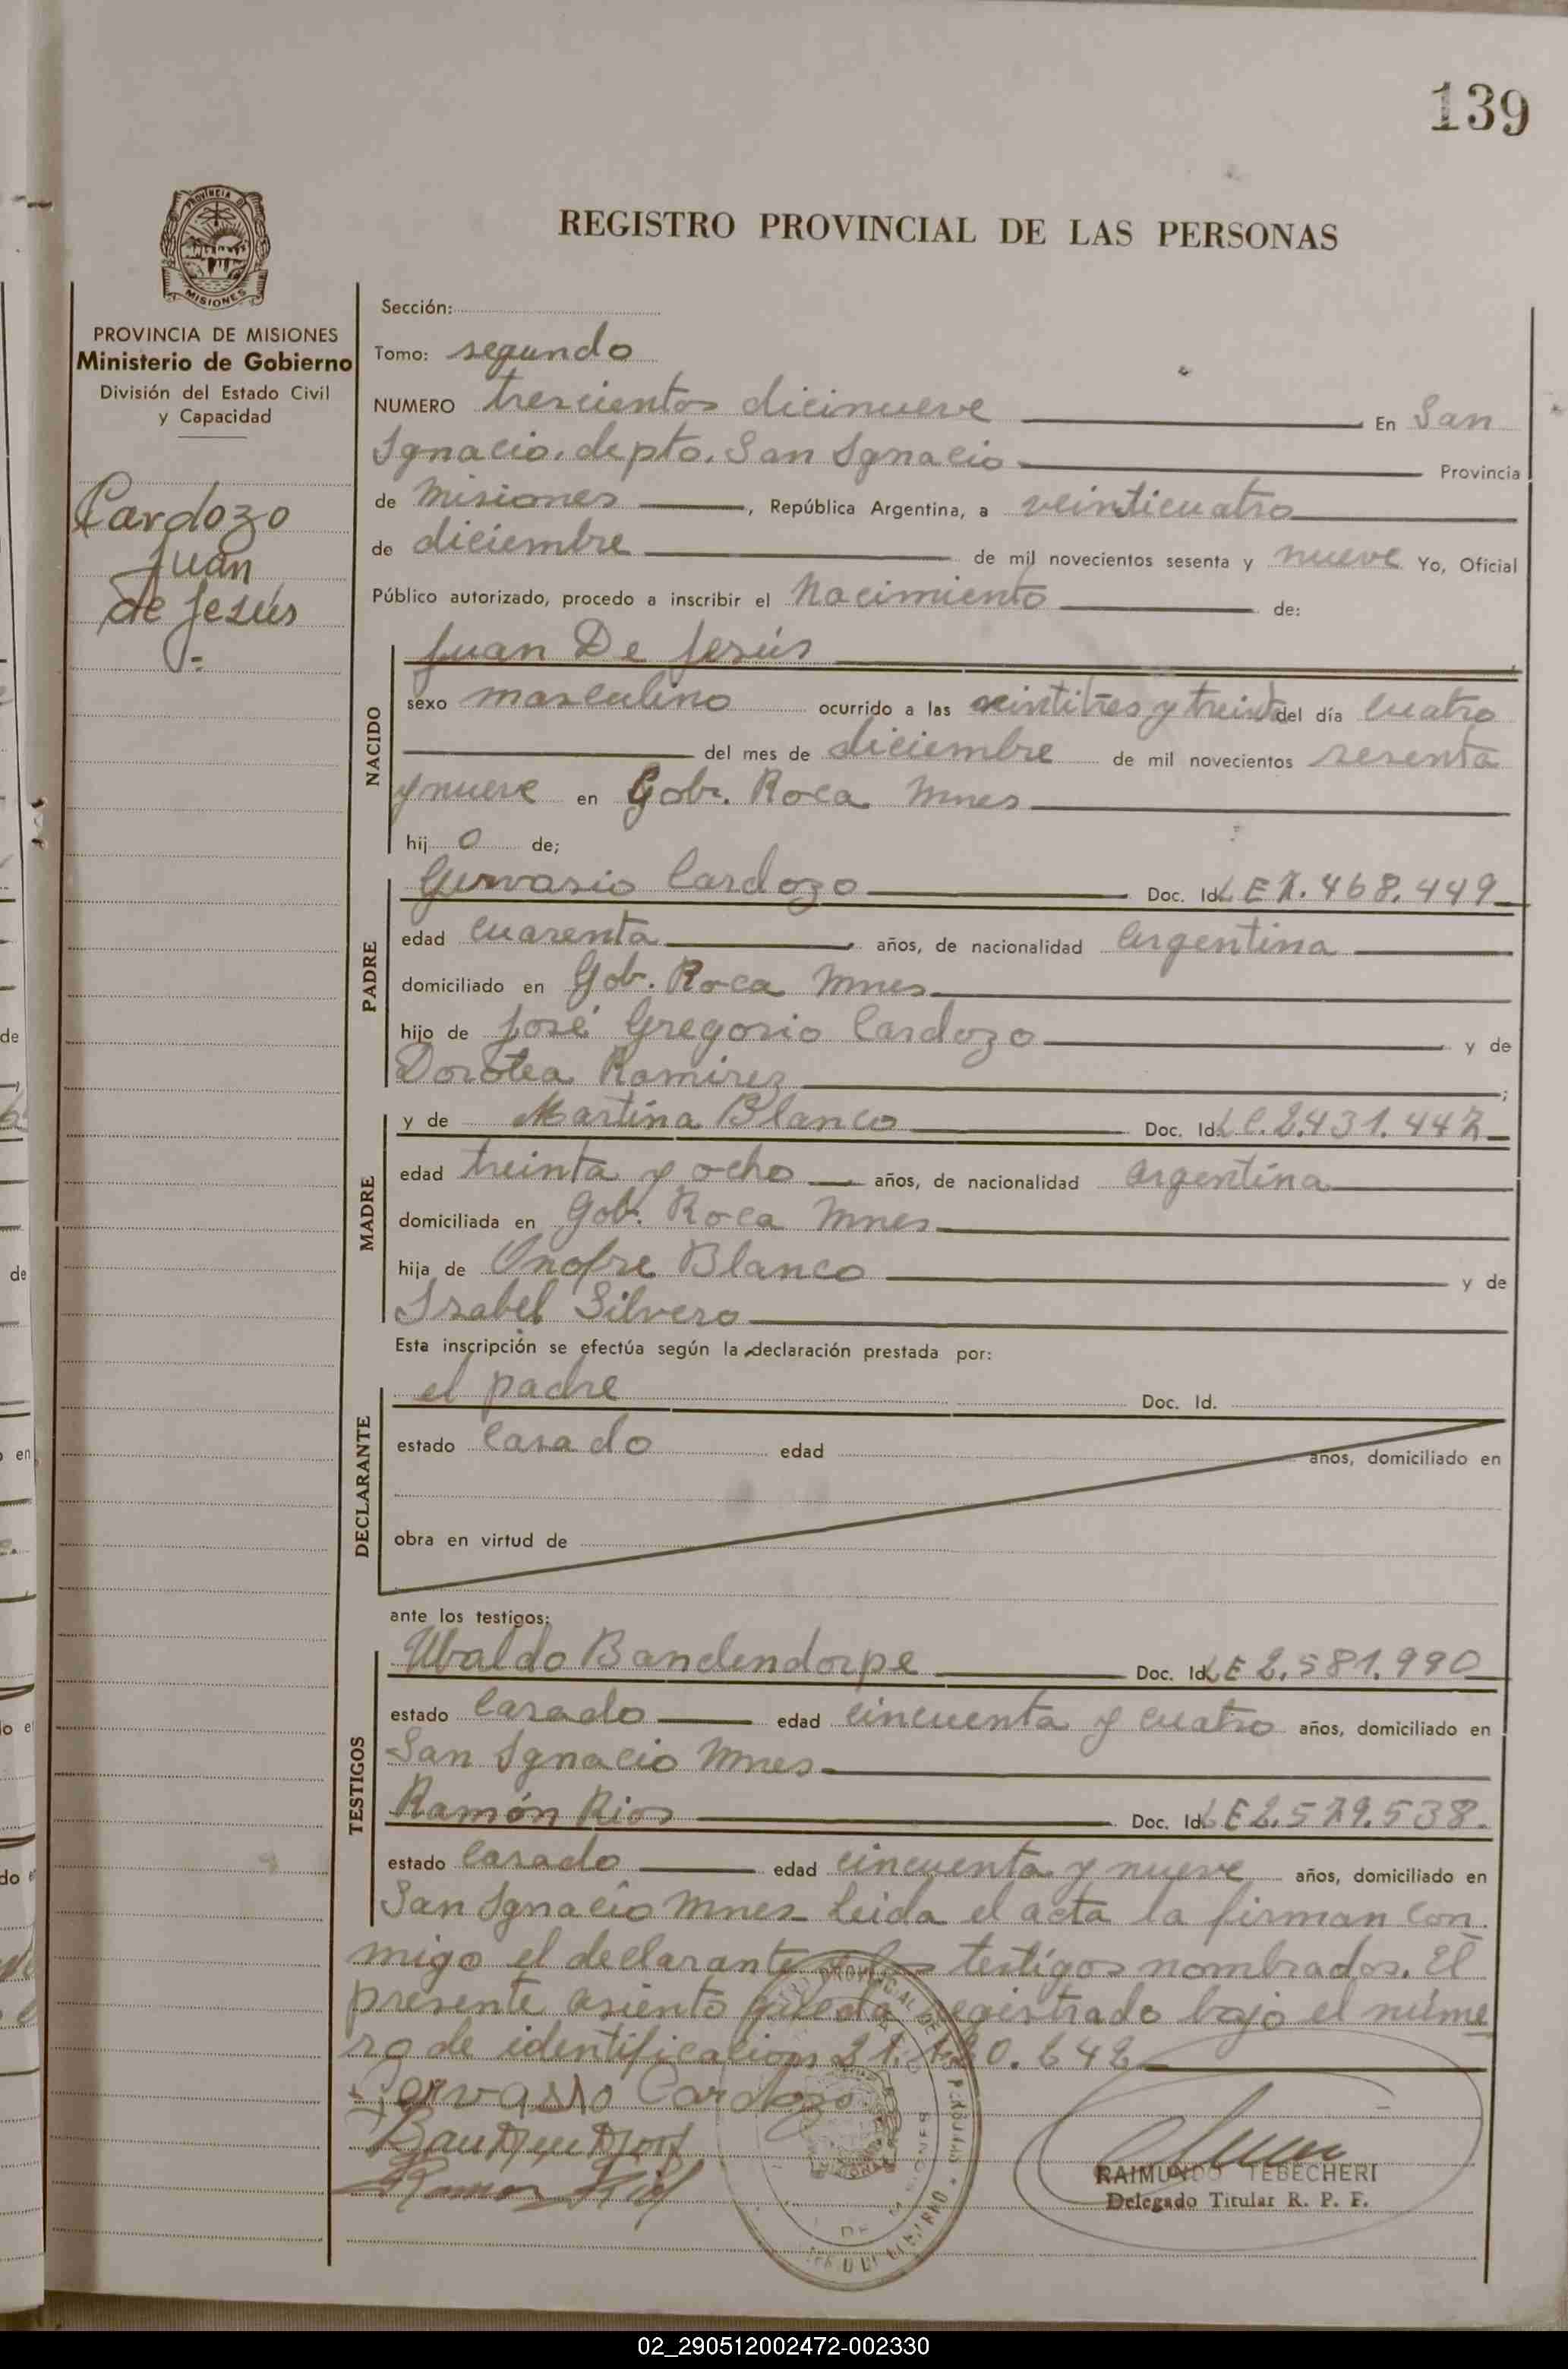 139
PROVINCIA DE
MISIONES
REGISTRO PROVINCIAL DE LAS PERSONAS
PROVINCIA DE MISIONES
Ministerio de Gobierno
División del Estado Civil
y Capacidad
Cardozo
Juan
de Jesús
Sección:
Tomo: segundo
NUMERO trescientos dicinueve En San
Ignacio. depto. San Ignacio Provincia
de Misiones , República Argentina, a veinticuatro
de diciembre de mil novecientos sesenta y nueve Yo, Oficial
Público autorizado, procedo a inscribir el Nacimiento de:
NACIDO
Juan De Jesús
sexo masculino ocurrido a las veintitres y treinta del día cuatro
del mes de diciembre de mil novecientos sesenta
y nueve en Gobr. Roca Mnes
hij o de;
PADRE
Gervasio Cardozo Doc. Id. LE 7.468.449
edad cuarenta años, de nacionalidad argentina
domiciliado en Gob. Roca Mnes
hijo de José Gregorio Cardozo y de
Dorotea Ramirez ;
MADRE
y de Martina Blanco Doc. Id. LC. 2.431.447
edad treinta y ocho años, de nacionalidad argentina
domiciliada en Gob. Roca Mnes
hija de Onofre Blanco y de
Isabel Silvero
Esta inscripción se efectúa según la declaración prestada por:
DECLARANTE
el padre Doc. Id.
estado casado edad años, domiciliado en
obra en virtud de
ante los testigos:
TESTIGOS
Ubaldo Bandendorpe Doc. Id. LE 2.581.990
estado casado edad cincuenta y cuatro años, domiciliado en
San Ignacio Mnes
Ramón Rios Doc. Id. LE 2.579.538.
estado casado edad cincuenta y nueve años, domiciliado en
San Ignacio Mnes Leida el acta la firman con
migo el declarante y los testigos nombrados. El
presente asiento queda registrado bajo el núme
ro de identificacion 21.
Gervasio Cardozo
Ramon Rios
RAIMUNDO TEBECHERI
Delegado Titular R. P. F.
02_290512002472-002330